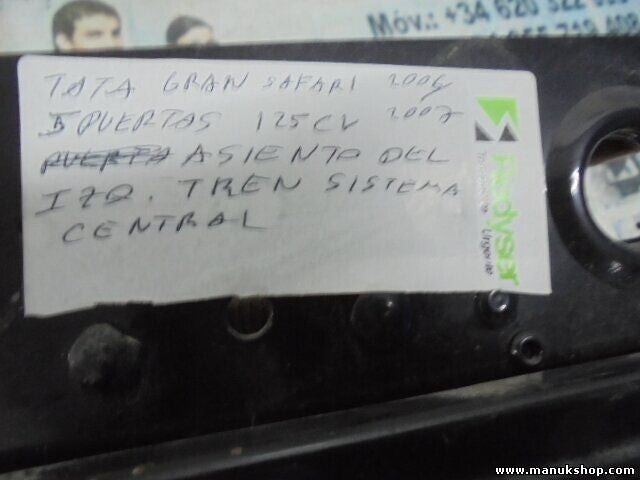 Móv.: +34 620 322
TATA GRAN SAFARI 2006
5 PUERTAS 125CV 2007
PUERTA ASIENTO DEL
IZQ. TREN SISTEMA
CENTRAL
Redyser
Transporte Urgente
www.manukshop.com